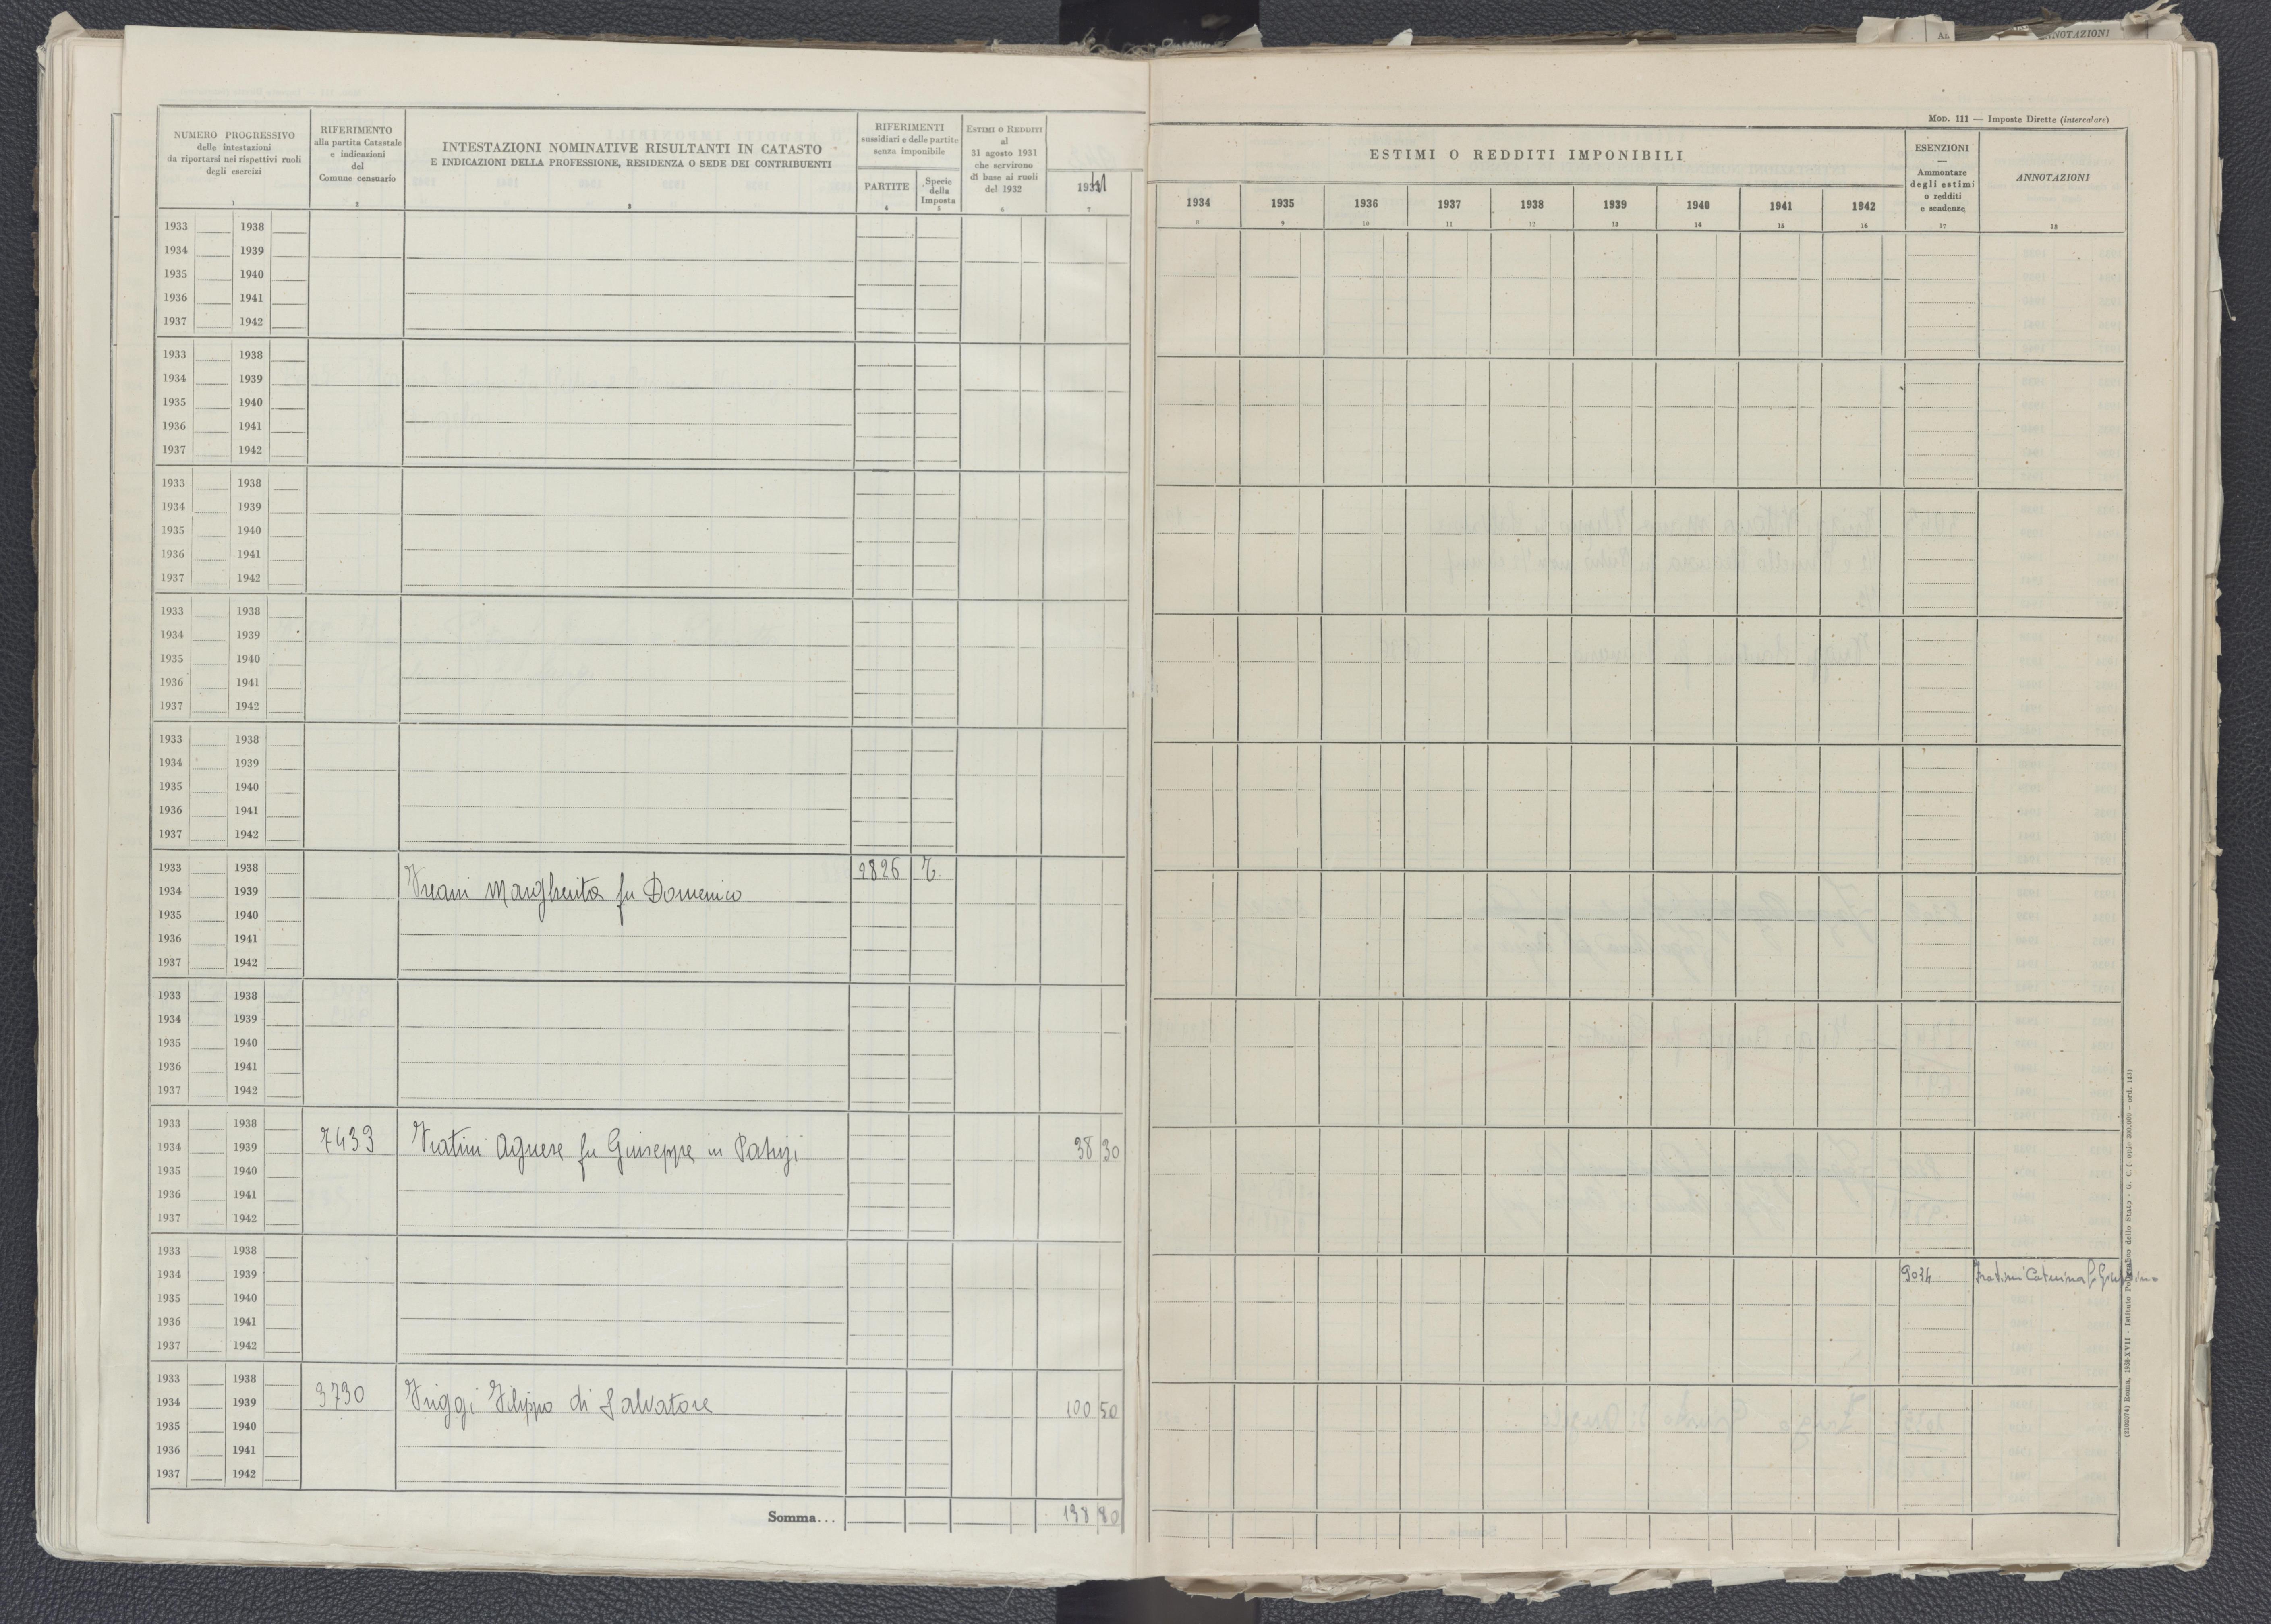 NUMERO PROGRESSIVO
delle intestazioni
da riportarsi nei rispettivi ruoli
degli esercizi
1
RIFERIMENTO
alla partita Catastale
e indicazioni
del
Comune censuario
2
INTESTAZIONI NOMINATIVE RISULTANTI IN CATASTO
E INDICAZIONI DELLA PROFESSIONE, RESIDENZA O SEDE DEI CONTRIBUENTI
3
RIFERIMENTI
sussidiari e delle partite
senza imponibile
PARTITE
4
Specie
della
Imposta
5
ESTIMI O REDDITI
al
31 agosto 1931
che servirono
di base ai ruoli
del 1932
6
7
1933 1938
1934 1939
1935 1940
1936 1941
1937 1942
1933 1938
1934 1939
1935 1940
1936 1941
1937 1942
1933 1938
1934 1939
1935 1940
1936 1941
1937 1942
1933 1938
1934 1939
1935 1940
1936 1941
1937 1942
1933 1938
1934 1939
1935 1940
1936 1941
1937 1942
1933 1938 2826
1934 1939 Margherita fu Domenico
1935 1940
1936 1941
1937 1942
1933 1938
1934 1939
1935 1940
1936 1941
1937 1942
1933 1938
1934 1939 7433 Fratini Agnese fu Giuseppe in Patrizi 38 30
1935 1940
1936 1941
1937 1942
1933 1938
1934 1939
1935 1940
1936 1941
1937 1942
1933 1938
1934 1939 3730 Friggi Filippo di Salvatore 100 50
1935 1940
1936 1941
1937 1942
Somma... 138 80
MOD. 111 — Imposte Dirette (intercalare)
ESTIMI O REDDITI IMPONIBILI
1934 1935 1936 1937 1938 1939 1940 1941 1942
8 9 10 11 12 13 14 15 16
ESENZIONI
Ammontare
degli estimi
o redditi
e scadenze
17
ANNOTAZIONI
18
9034 Fratini Caterina fu
ANNOTAZIONI